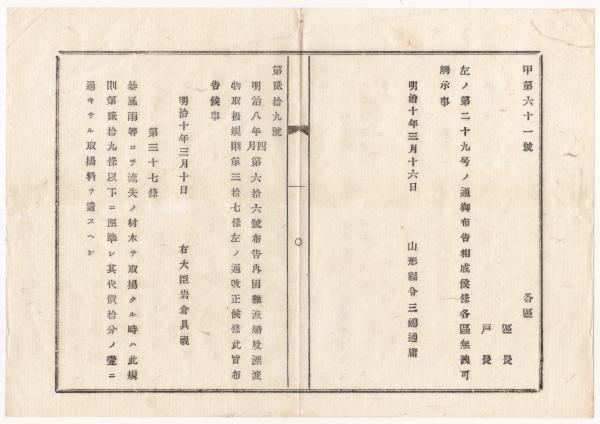 甲第六十一號
各區
區長
戸長
左ノ第二十九号ノ通御布告相成候條各區無洩可
觸示事
明治十年三月十六日
山形縣令三島通庸
第貳拾九號
明治八年四月第六拾六號布告內國難破船及漂流
物取扱規則第三拾七條左ノ通改正候條此旨布
告候事
明治十年三月十日
右大臣岩倉具視
第三十七條
暴風雨等ニテ流失ノ材木ヲ取揚タル時ハ此規
則第貳拾九條以下ニ照準シ其代價拾分ノ壹ニ
過キサル取揚料ヲ遣スヘシ